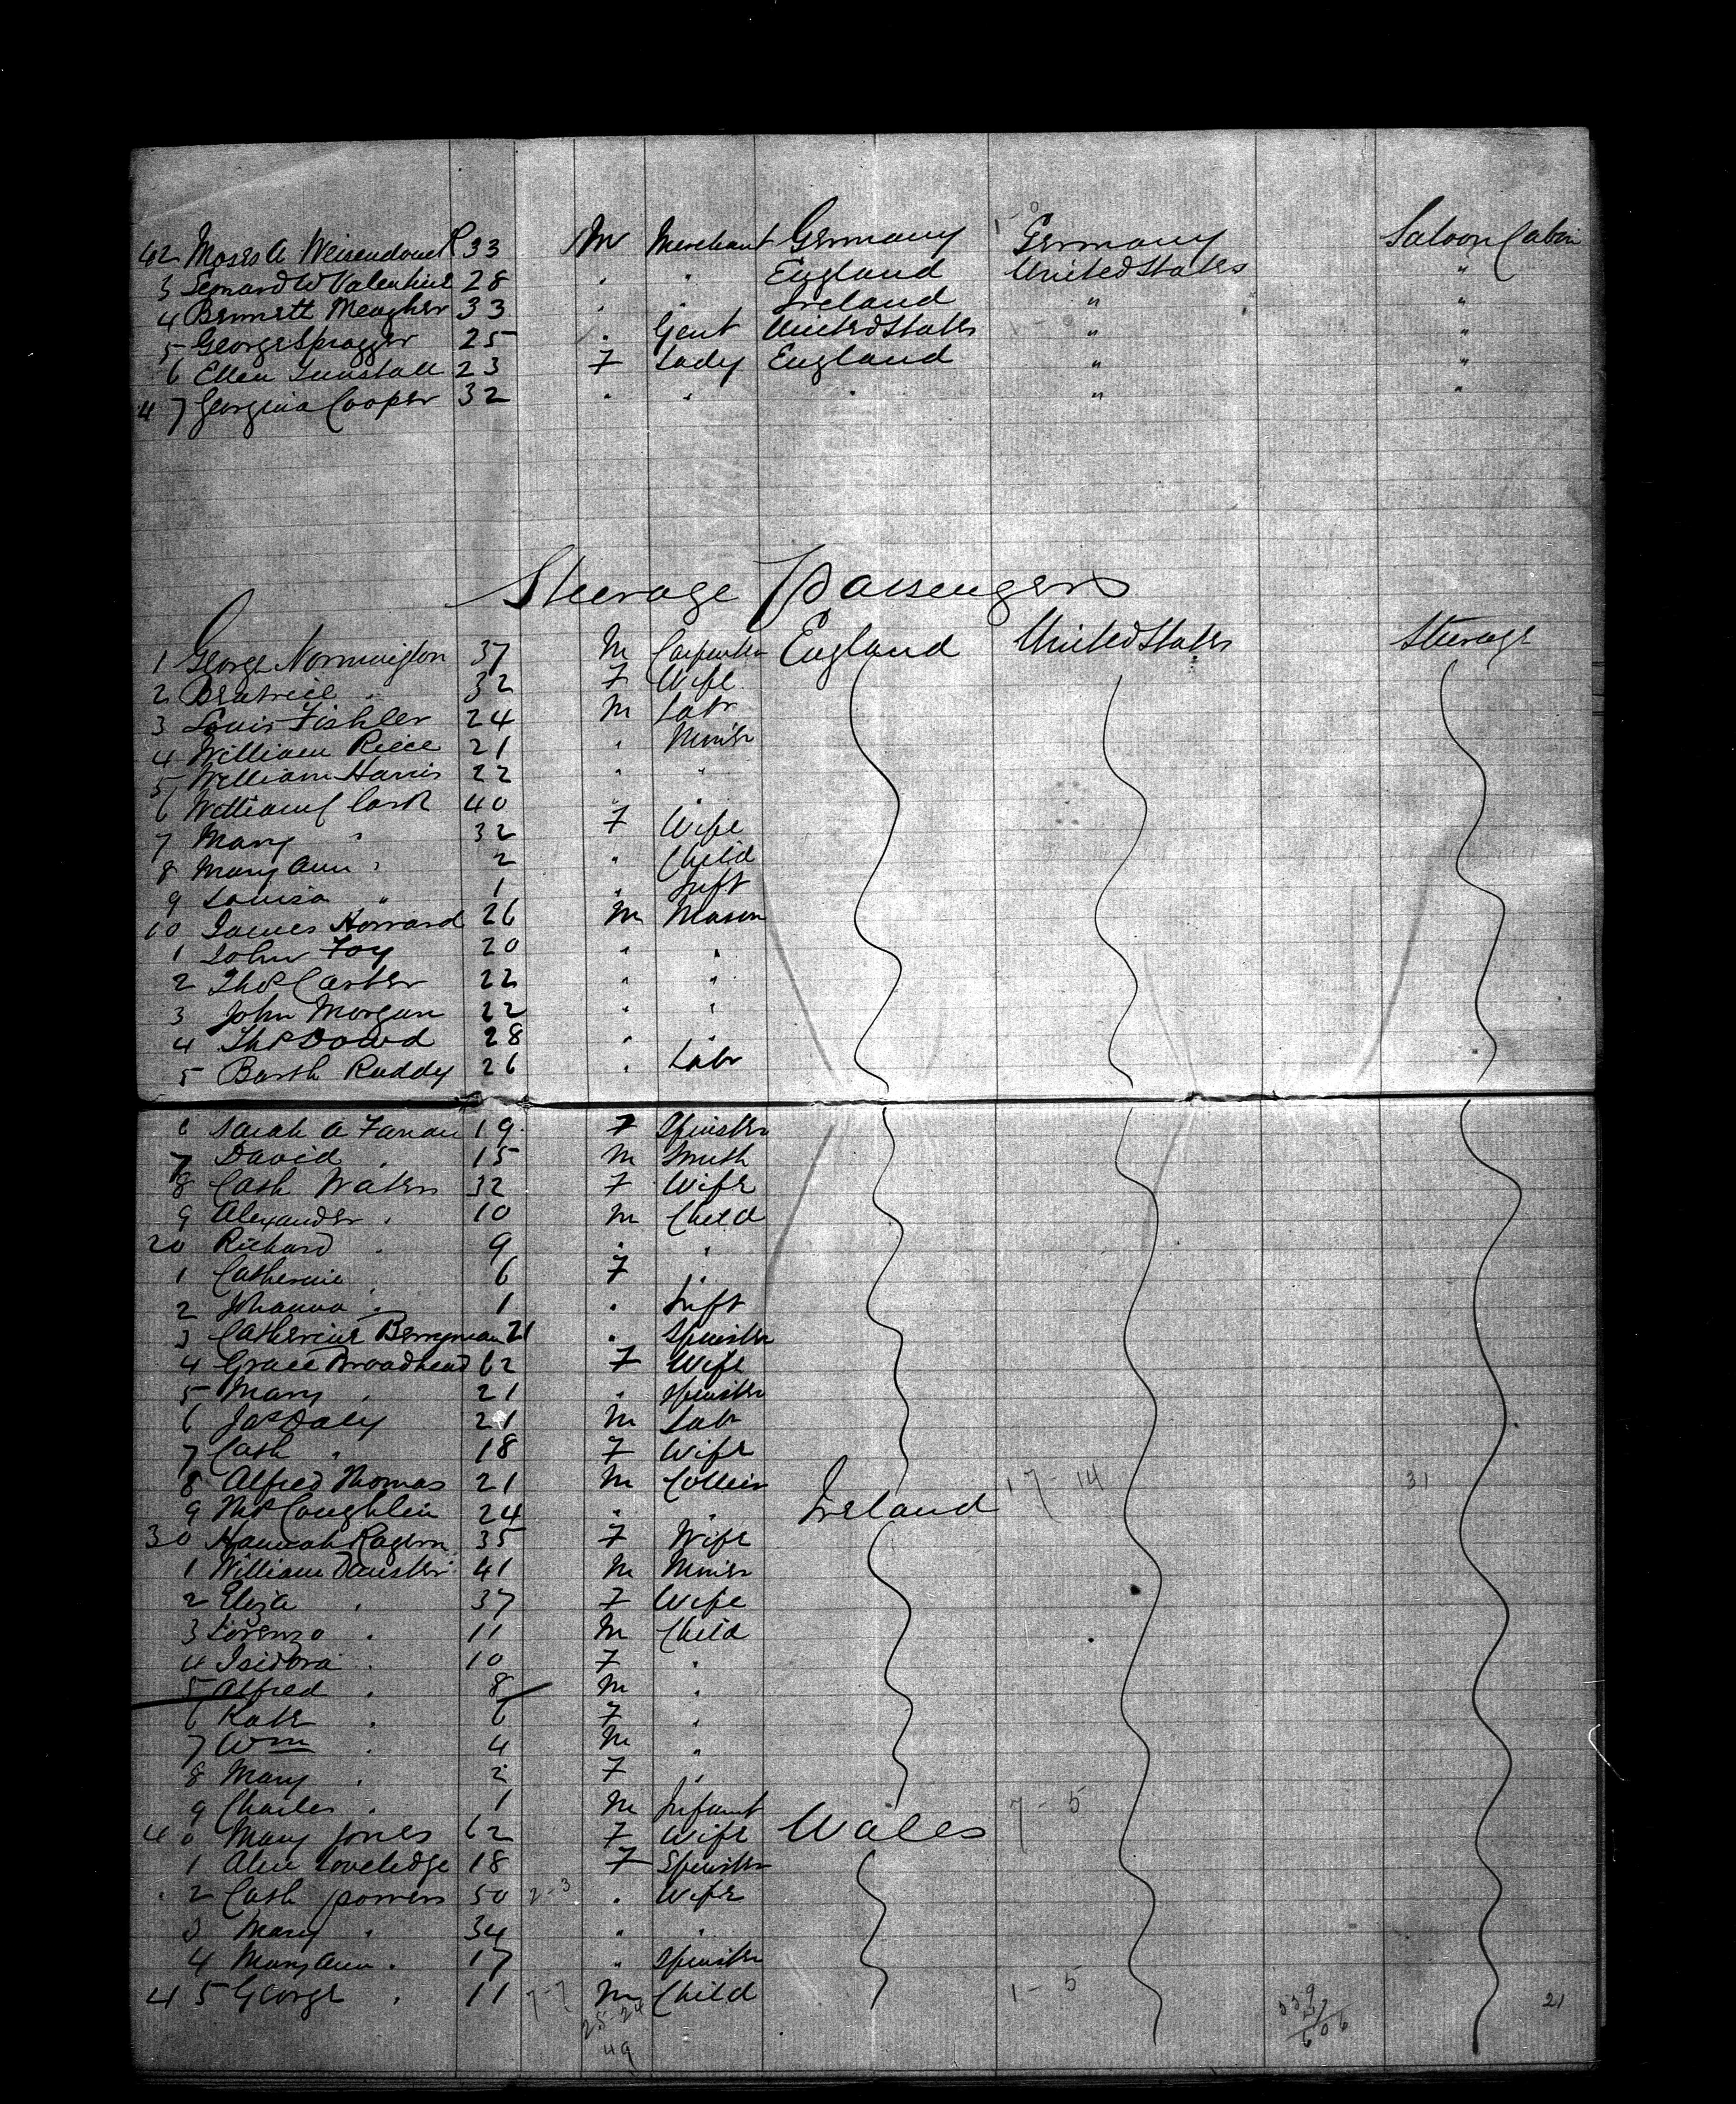 42 Moses A Weisendonck 33 M Merchant Germany Germany Saloon Cabin
3 Leonard W Valentine 28 " " England United States "
4 Bennett Meagher 33 " " Ireland " "
5 George Spragger 25 " Gent United States " "
6 Ellen Tunstall 23 F Lady England " "
47 Georgina Cooper 32 " " " " "
Steerage Passengers
1 George Normington 37 M Carpenter England United States Steerage
2 Beatrice " 32 F Wife
3 Louis Fishler 24 M Labr
4 William Reece 21 " Miner
5 William Harris 22 " "
6 William Cark 40 " "
7 Mary " 32 F Wife
8 Mary Ann " 2 " Child
9 Louisa " 1 " Inft
10 James Howard 26 M Mason
1 John Foy 20 " "
2 Thos Carter 22 " "
3 John Morgan 22 " "
4 Thos Dowd 28 " "
5 Barth Ruddy 26 " Labr
6 Sarah A 19 F Spinster
7 David " 15 M Smith
8 Cath Waters 32 F Wife
9 Alexander " 10 M Child
20 Richard " 9 " "
1 Catherine " 6 F "
2 Johanna " 1 " Inft
3 Catherine Berryman 21 " Spinster
4 Grace Broadhead 62 F Wife
5 Mary " 21 " Spinster
6 Jas Daly 21 M Labr
7 Cath " 18 F Wife
8 Alfred Thomas 21 M Collier 17-14 31
9 Coughlin 24 " " Ireland
30 Hannah 35 F Wife
1 William 41 M Miner
2 Eliza " 37 F Wife
3 Lorenzo " 11 M Child
4 Isidora " 10 F "
5 Alfred " 8 M "
6 Kate " 6 F "
7 Wm " 4 M "
8 Mary " 2 F "
9 Charles " 1 M Infant 7-5
40 Mary Jones 62 F Wife Wales
1 Alice Loveledge 18 F Spinster
2 Cath Powers 50 2-3 " Wife
3 Mary " 34 " "
4 Mary Ann " 17 " Spinster
45 George " 11 7-7 M Child 1-5 21
25-24
49
606